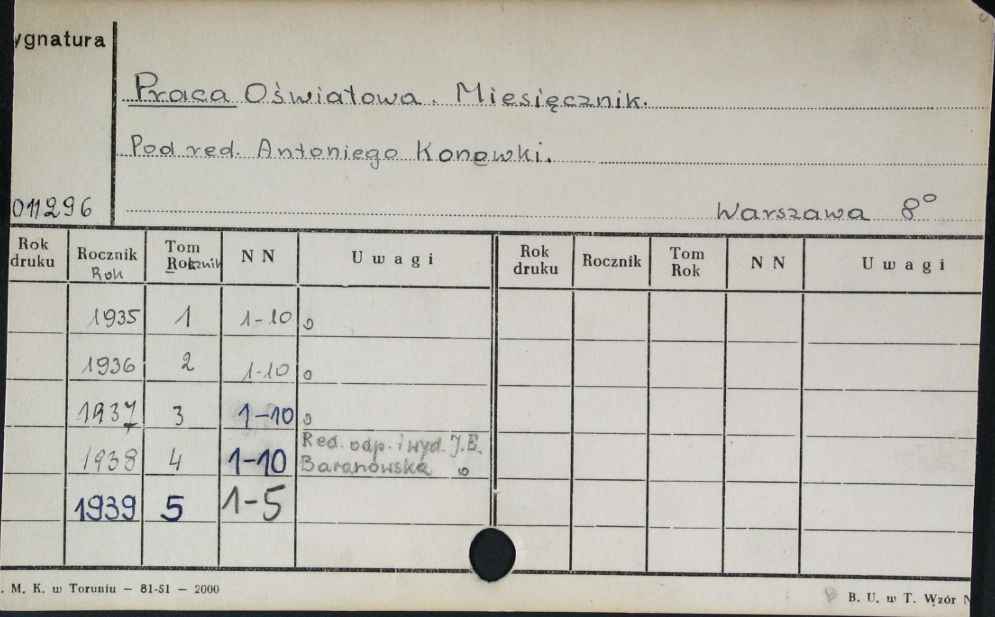 ygnatura
Praca Oświatowa. Miesięcznik.
Pod red. Antoniego Konewki.
011296
Warszawa 8°
Rok druku Rocznik Rok Tom Rocznik N N Uwagi Rok druku Rocznik Tom Rok N N Uwagi
1935 1 1-10 o
1936 2 1-10 o
1937 3 1-10 o
1938 4 1-10 Red. odp. i wyd. J.E. Baranowska o
1939 5 1-5
. M. K. w Toruniu — 81-51 — 2000
B. U. w T. Wzór N